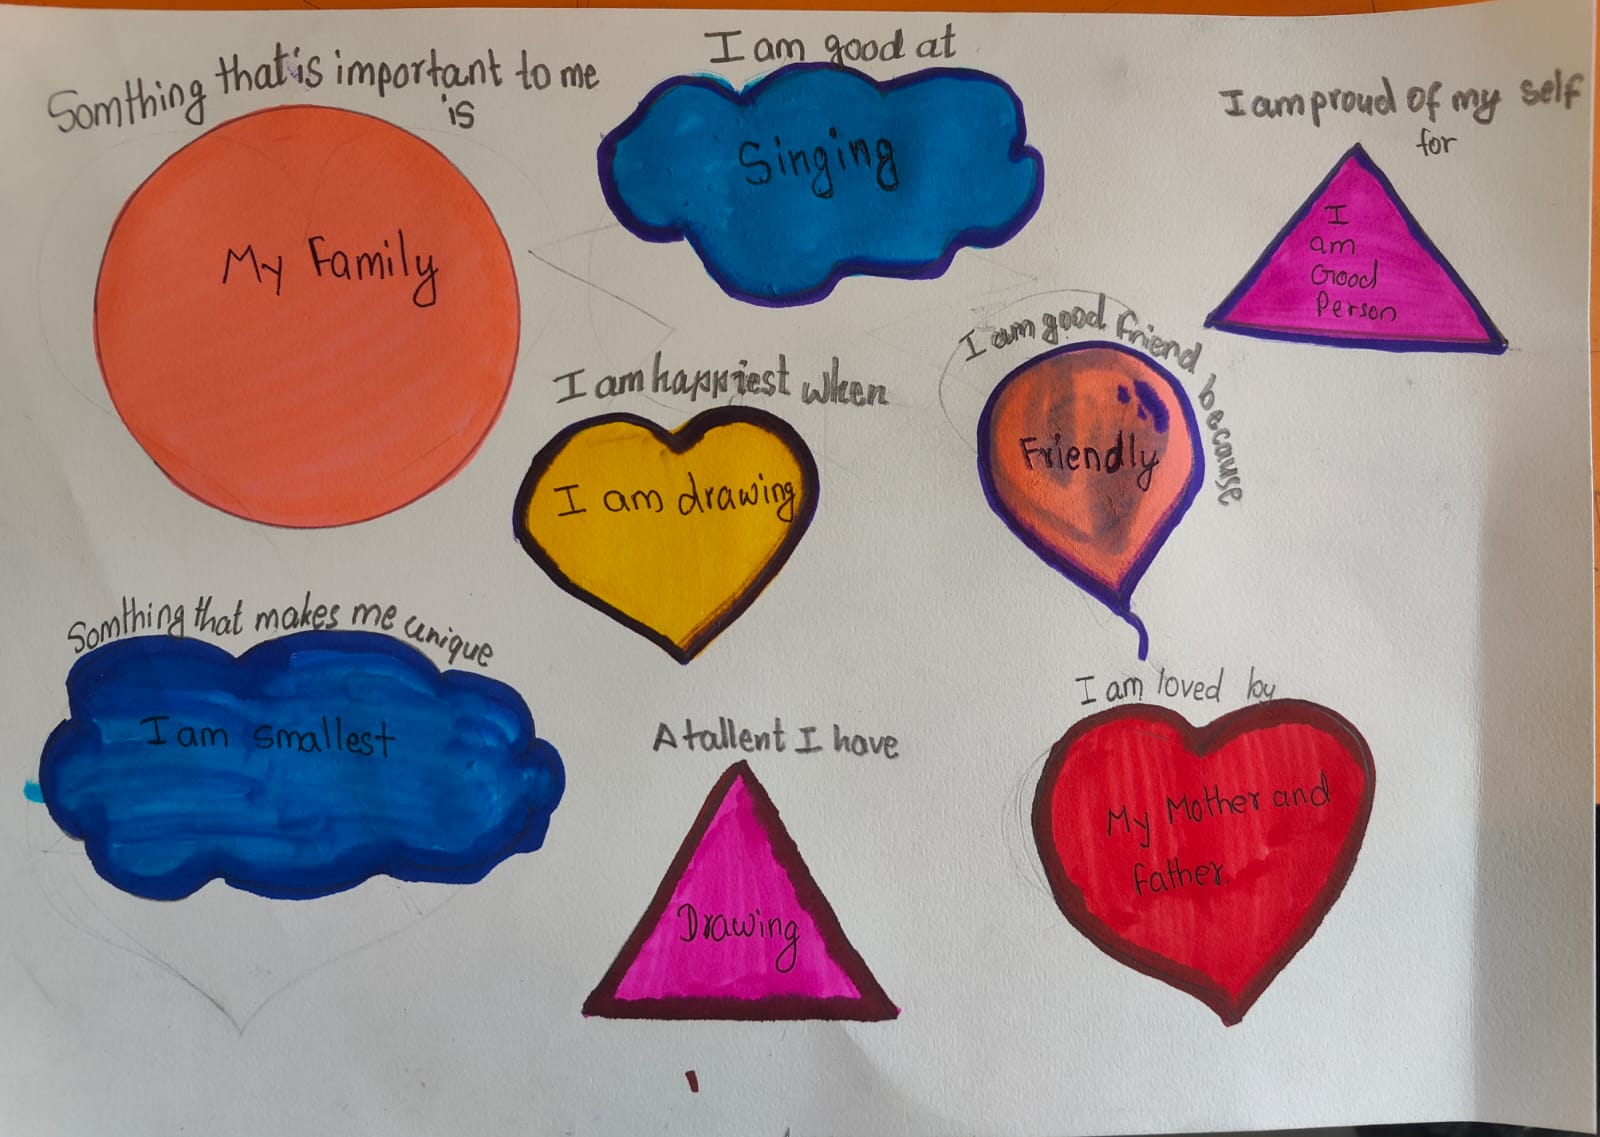 Somthing that is important to me
is
My Family
I am good at
Singing
I am proud of my self
for
I
am
Good
Person
I am happiest when
I am drawing
I am good friend because
Friendly
Somthing that makes me unique
I am smallest
A tallent I have
Drawing
I am loved by
My Mother and
father.